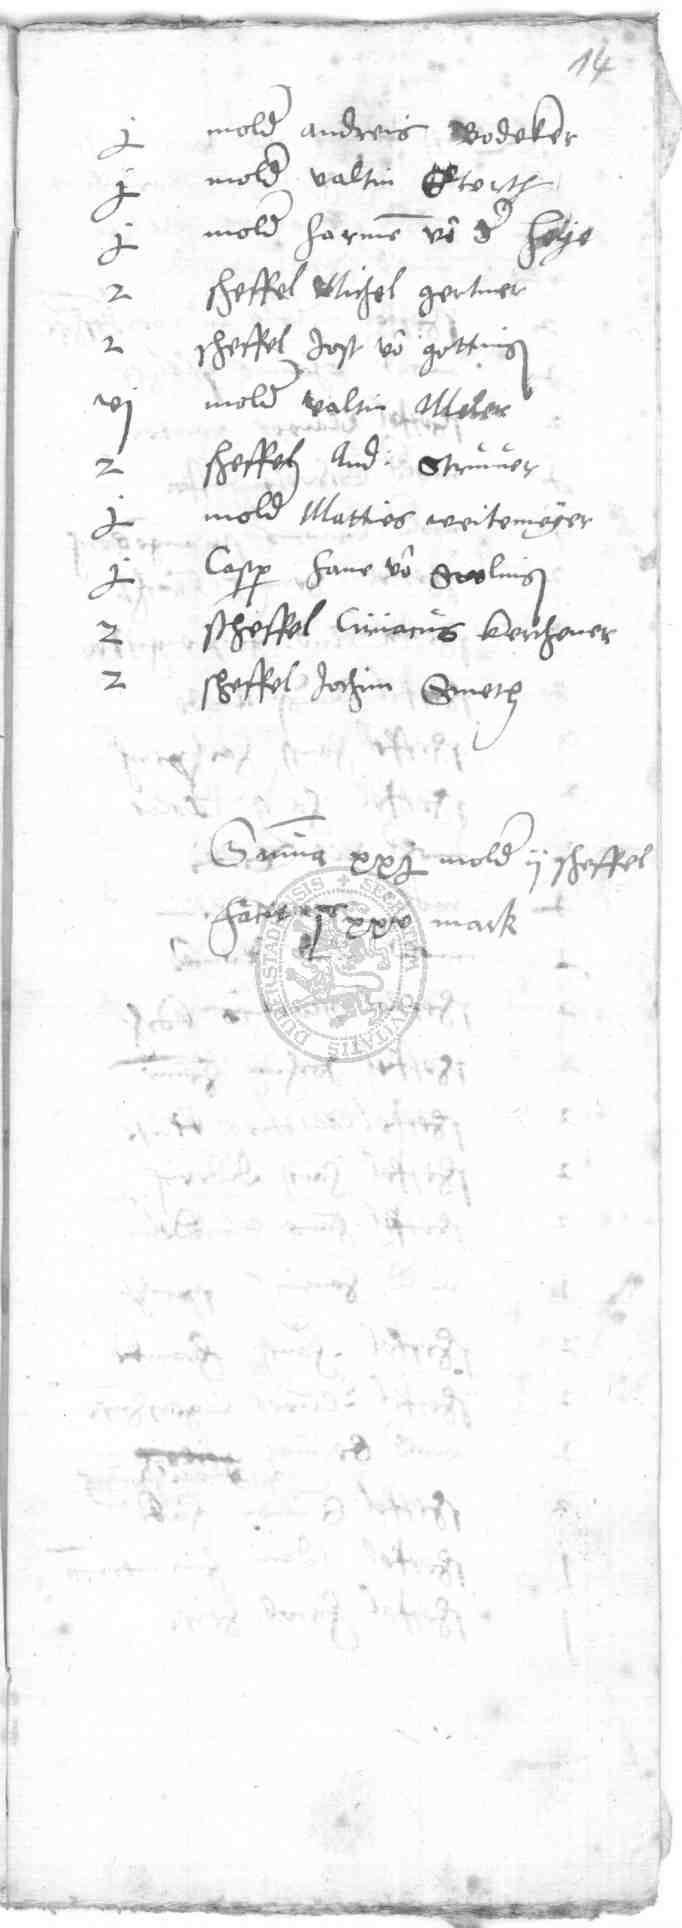 14
j mold andreis Bodeker
j mold valtin Sterth
j mold harmē vō d heye
2 scheffel Michel gertner
2 scheffel Jost vō gotting
vj mold valtin Meler
2 scheffel And. Struver
j mold Matties weitemeyer
j Casp hane vō
2 scheffel Ciriacus kerchener
2 scheffel Jochim Smeth
Suma xxj mold ij scheffel
facit xxv mark
SECRETUM CIVITATIS DUDERSTADENSIS